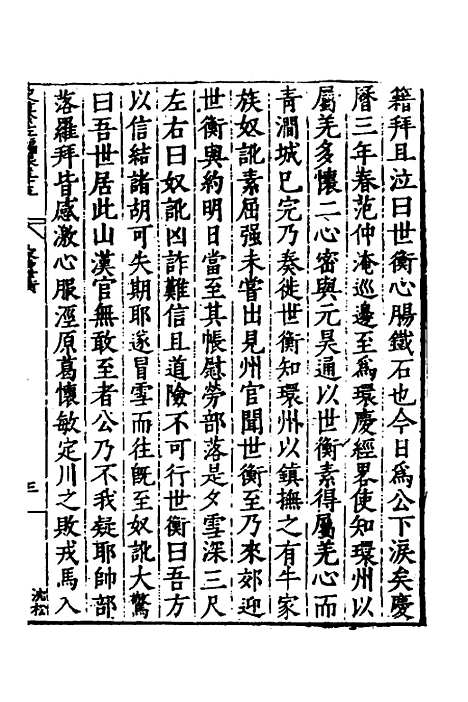 籍拜且泣曰世衡心腸鐵石也今日爲公下淚矣慶
曆三年春范仲淹巡邊至爲環慶經畧使知環州以
屬羌多懷二心密與元昊通以世衡素得屬羌心而
青澗城已完乃奏徙世衡知環州以鎮撫之有牛家
族奴訛素屈强未嘗出見州官聞世衡至乃來郊迎
世衡與約明日當至其帳慰勞部落是夕雪深三尺
左右曰奴訛凶詐難信且道險不可行世衡曰吾方
以信結諸胡可失期耶遂冒雪而往旣至奴訛大驚
曰吾世居此山漢官無敢至者公乃不我疑耶帥部
落羅拜皆感激心服涇原葛懷敏定川之敗戎馬入
三
沈松